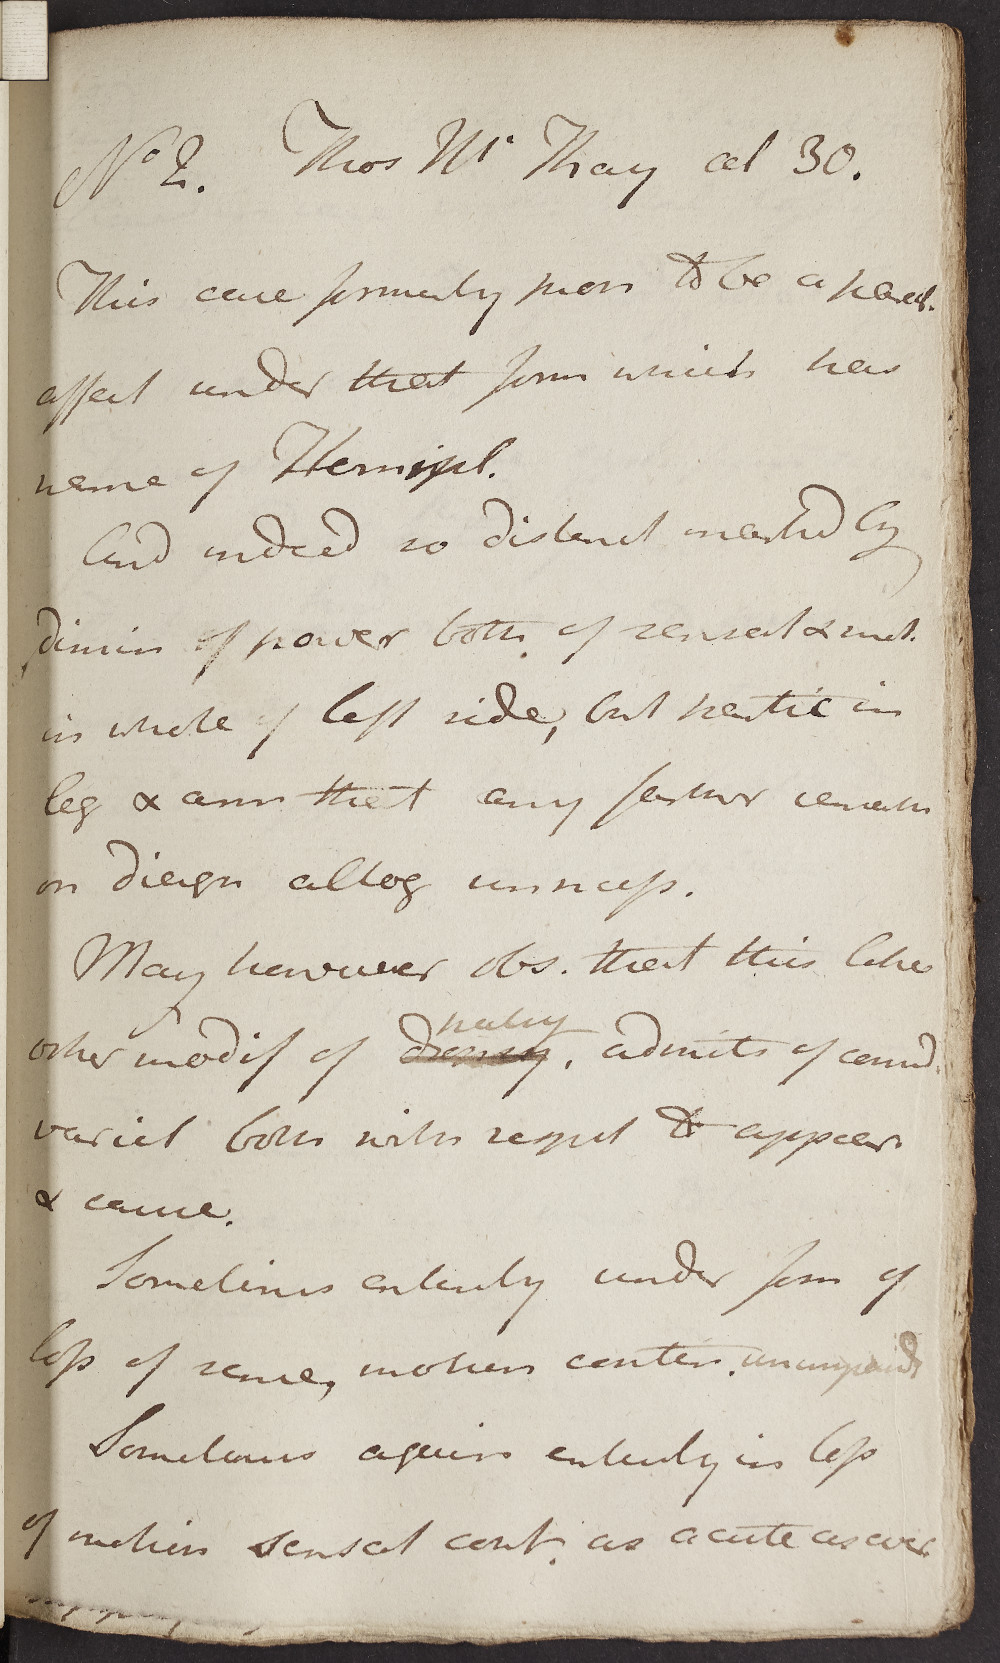 No 2. Thos Mc Thay aet 30.
This case formerly pron to be a paral.
affect under that form which has
name of Hemipl.
And indeed so distinct marked by
dimin of power both of sensat & mot.
in whole of left side, but partic in
leg & arm that any farther remark
on diagn altog unnecess.
May however obs. that this like
other modif of palsy, admits of consid.
variet both with respect to appear
& cause.
Sometimes entirely under form of
loss of sense, motion contin. unimpaird
Sometimes again entirely in loss
of motion sensat cont. as acute as ever